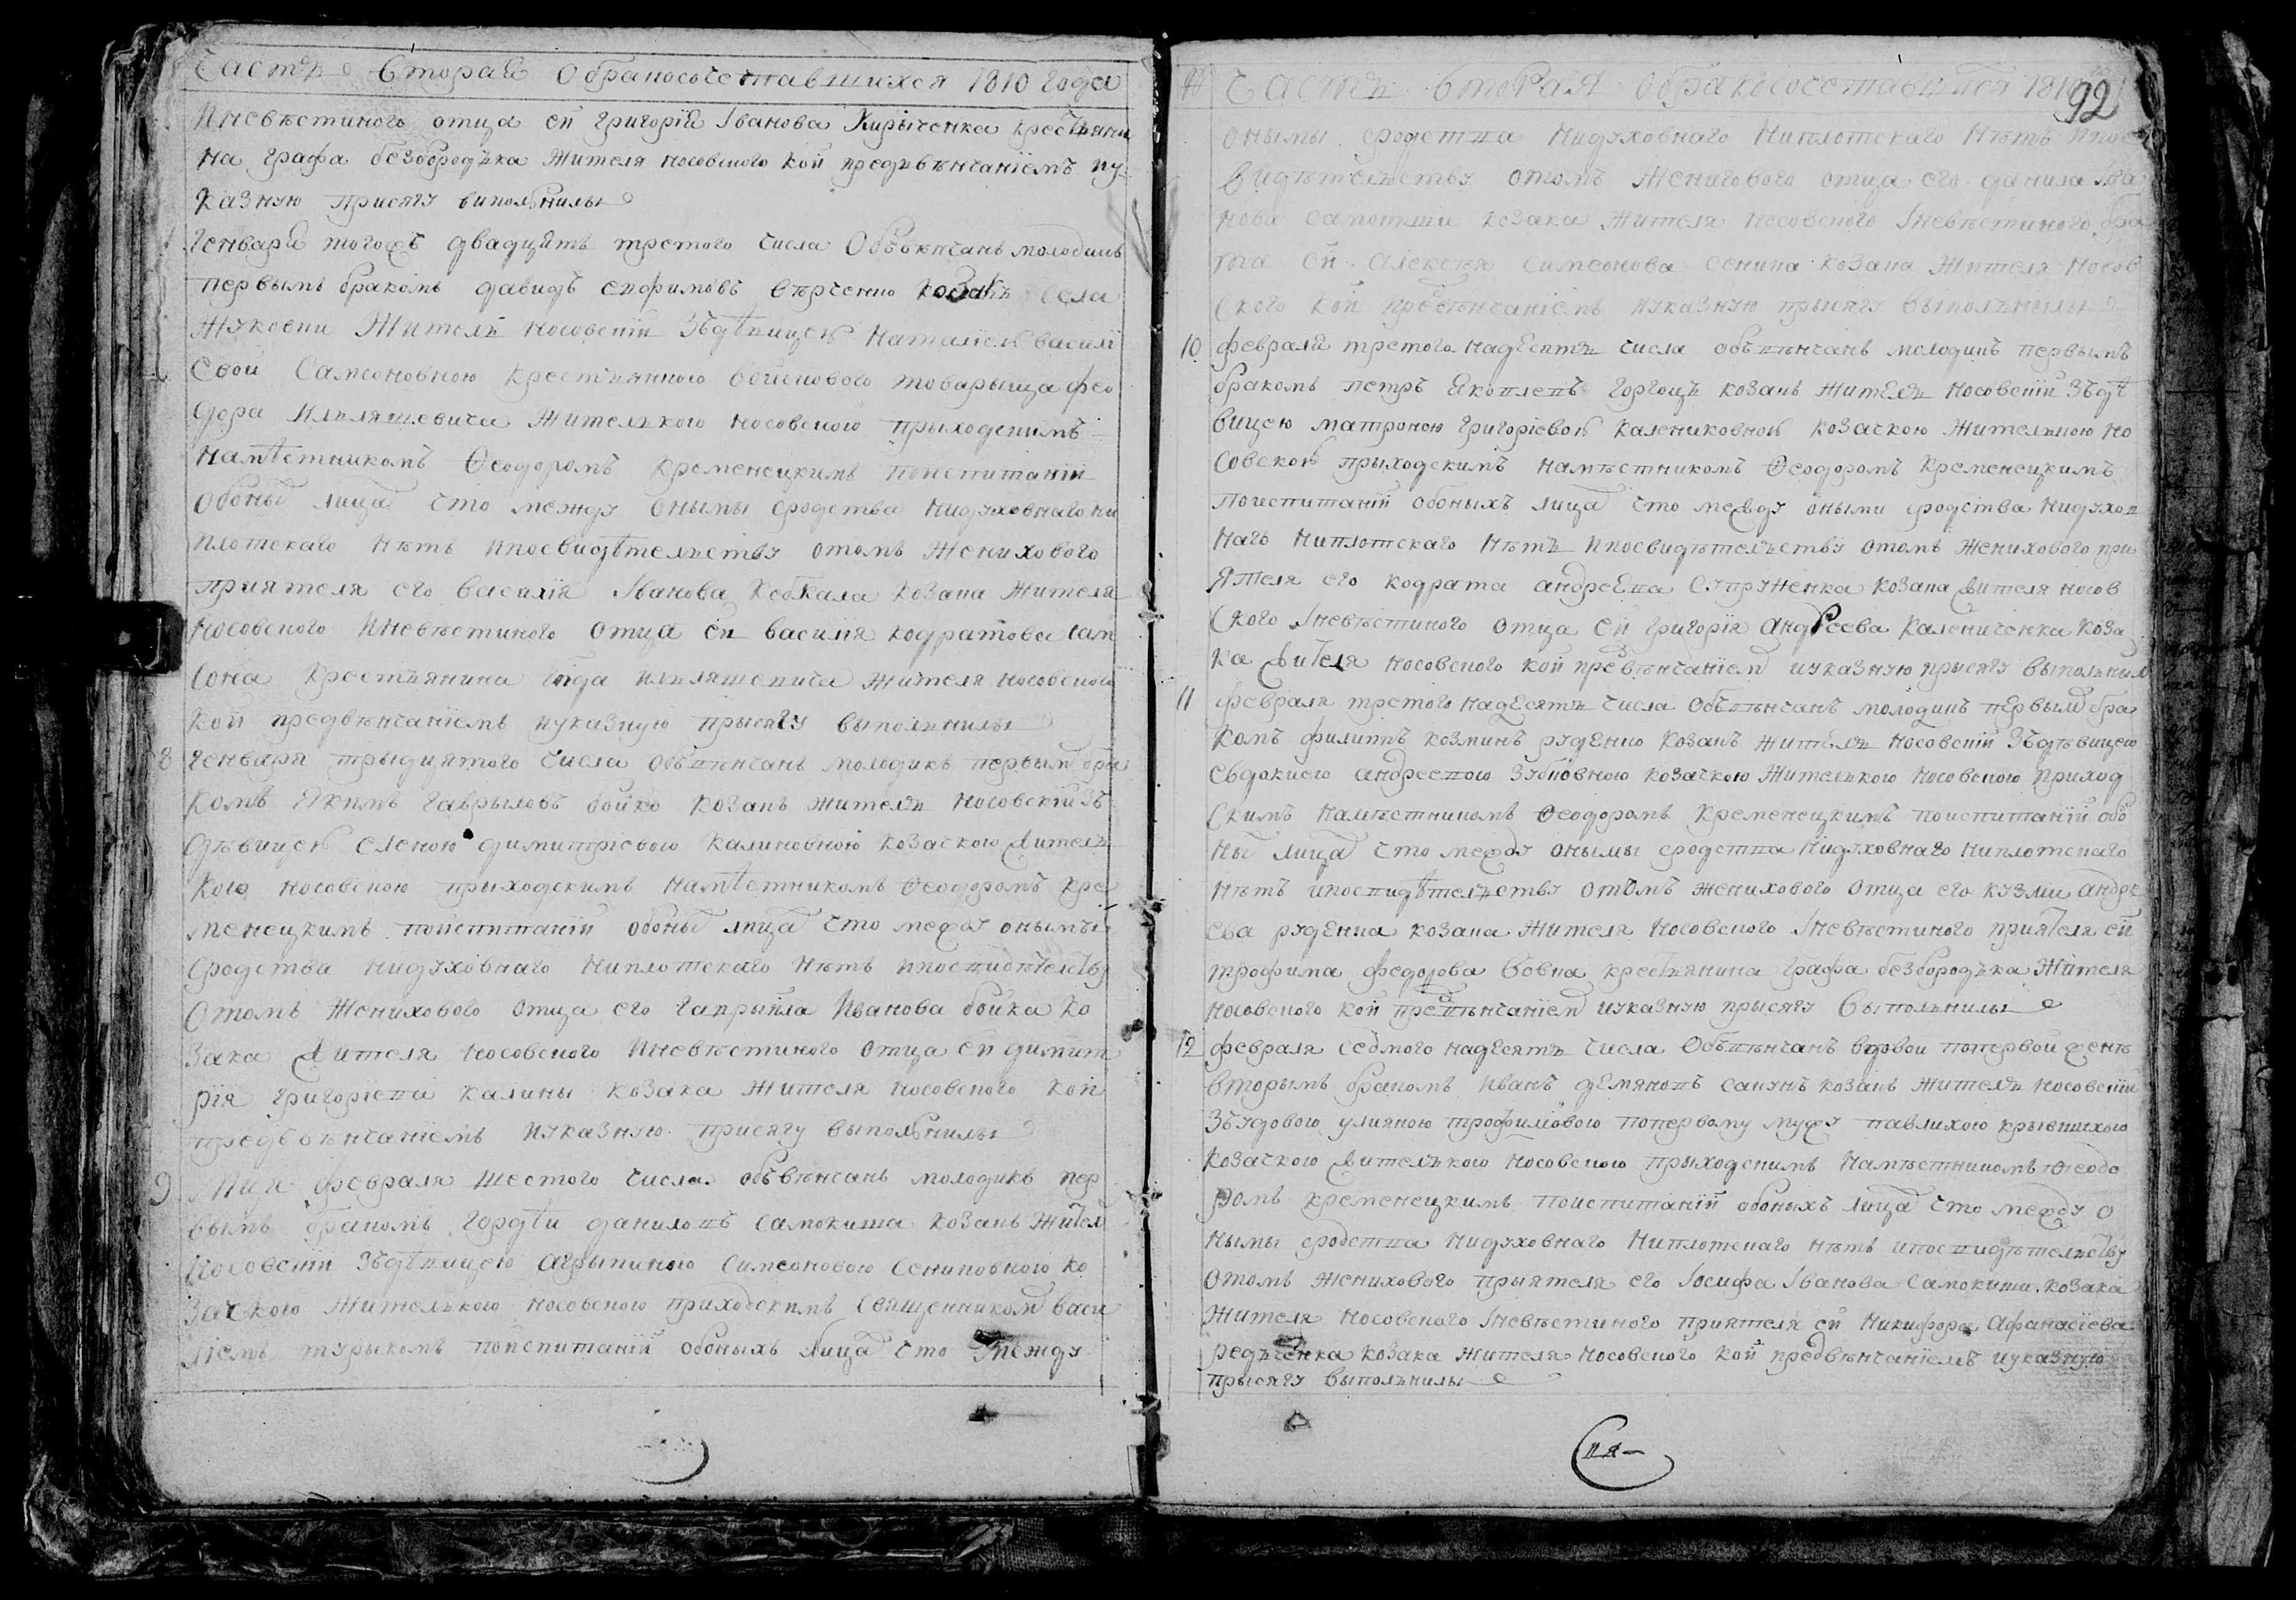 Часть Вторая О бракосочетавшихся 1810 года
Иневѣстиного отца ей григорія Іванова Кирыченка крестьяни
на графа безбородька жителя носовского кой предъвѣнчаніемъ ну
казную присягу виполънилы
7 генваря тогожъ двадцять третого числа Обвѣнчанъ молодикъ
первымъ бракомъ давидъ ефимовъ козакъ села
жуковки Жителъ носовскій Зъдѣвицею Наталіею василі
евой Самсоновною крестъянкою войскового товарыща фео
дора Илъляшевича Жителъкою носовскою прыходскимъ
намѣстникомъ Феодоромъ Кременецкимъ поиспитаніи
обоны лица что между онымы сродства нидуховнаго ни
плотскаго нѣтъ ипосвидѣтелъству отомъ женихового
приятеля его василія Іванова козака жителя
носовского иневѣстиного отца ей василия кодратова сам
сона крестъянина илъляшевича жителя носовского
кой предвѣнчаніемъ нуказную прысягу выполънилы
8 генваря трыдцятого числа обвѣнчанъ молодикъ первым бра
комъ Якимъ гаврыловъ бойко козакъ жителъ носовскій зъ
дѣвицею еленою димитріевою калиновною козачкою жителъ
кою носовскою прыходскимъ намѣстникомъ Феодоромъ кре
менецкимъ поиспитаніи обоны лица что между онымы
сродства нидуховнаго ниплотскаго нѣтъ ипосвидѣтелству
отомъ женихового отца его гаврыила Иванова бойка ко
зака жителя носовского иневѣстиного отца ей димит
рія григоріева калины козака жителя носовского кой
предвѣнчаніемъ нуказную присягу выполънилы
9 февраля шестого числа обвѣнчанъ молодикъ пер
вымъ бракомъ гордѣй даниловъ самокиша козакъ жител
носовскій Зъдѣвицею агрыпиною симеоновою сениповною ко
зачкою жителъкою носовскою приходскимъ священникомъ васи
ліемъ турыкомъ поиспитаніи обоныхъ лица что между
Часть Вторая О бракосочетавшихся 1810
92
онымы сродства нидуховнаго ниплотскаго нѣтъ ипос
видѣтелъству отомъ женихового отца его данила Ива
нова самокиши козака жителя носовского Іневѣстиного бра
та ей алексѣя симеонова сенипа козака жителя носов
ского кой предвѣнчаніемъ нуказную прысягу выполънилы
10 февраля третого надесять числа обвѣнчанъ молодикъ первымъ
бракомъ петръ Яковлевъ горгоцъ козакъ жителъ носовскій Зъдѣ
вицею матроною григоріевою калениковною козачкою жителъкою но
совскою прыходскимъ намѣстникомъ Феодоромъ Кременецкимъ
поиспитаніи обоныхъ лица что между оными сродства нидухов
наго ниплотскаго нѣтъ ипосвидѣтелъству отомъ женихового при
ятеля его кодрата андреева супруненка козака жителя носов
ского Іневѣстиного отца ей григорія андреева каленченка коза
ка жителя носовского кой предвѣнчаніем нуказную прысягу выполънил
11 февраля третого надесять числа Обвѣнчанъ молодикъ первым бра
комъ филиппъ козминъ руденко козакъ жителъ носовскій Зъдѣвицею
евдокиею андреевою зубковною козачкою жителъкою носовскою приход
скимъ намѣстникомъ Феодоромъ Кременецкимъ поиспитаніи обо
ны лица что между онымы сродства нидуховнаго ниплотскаго
нѣтъ ипосвидѣтелъству отомъ женихового отца его кузми андре
ева руденка козака жителя носовского Іневѣстиного приятеля ей
трофима федорова вовка крестъянина графа безбородъка жителя
носовского кой предвѣнчаніем нуказную прысягу выполънилы
12 февраля седмого надесять числа Обвѣнчанъ вдовой попервой женѣ
вторымъ бракомъ иванъ демяновъ сакунъ козакъ жителъ носовскій
Зъудовою улияною трофимовою попервому мужу павлихою крывицкою
козачкою жителъкою носовскою прыходскимъ намѣстникомъ Феодо
ромъ кременецкимъ поиспитаніи обоныхъ лица что между о
нымы сродства нидуховнаго ниплотскаго нѣтъ ипосвидѣтелъству
отомъ женихового прыятеля его Іосифа Іванова самокиши козака
жителя носовского Іневѣстиного приятеля ей Никифора Афанасіева
редъченка козака жителя носовского кой предвѣнчаніемъ нуказную
прысягу выполънилы